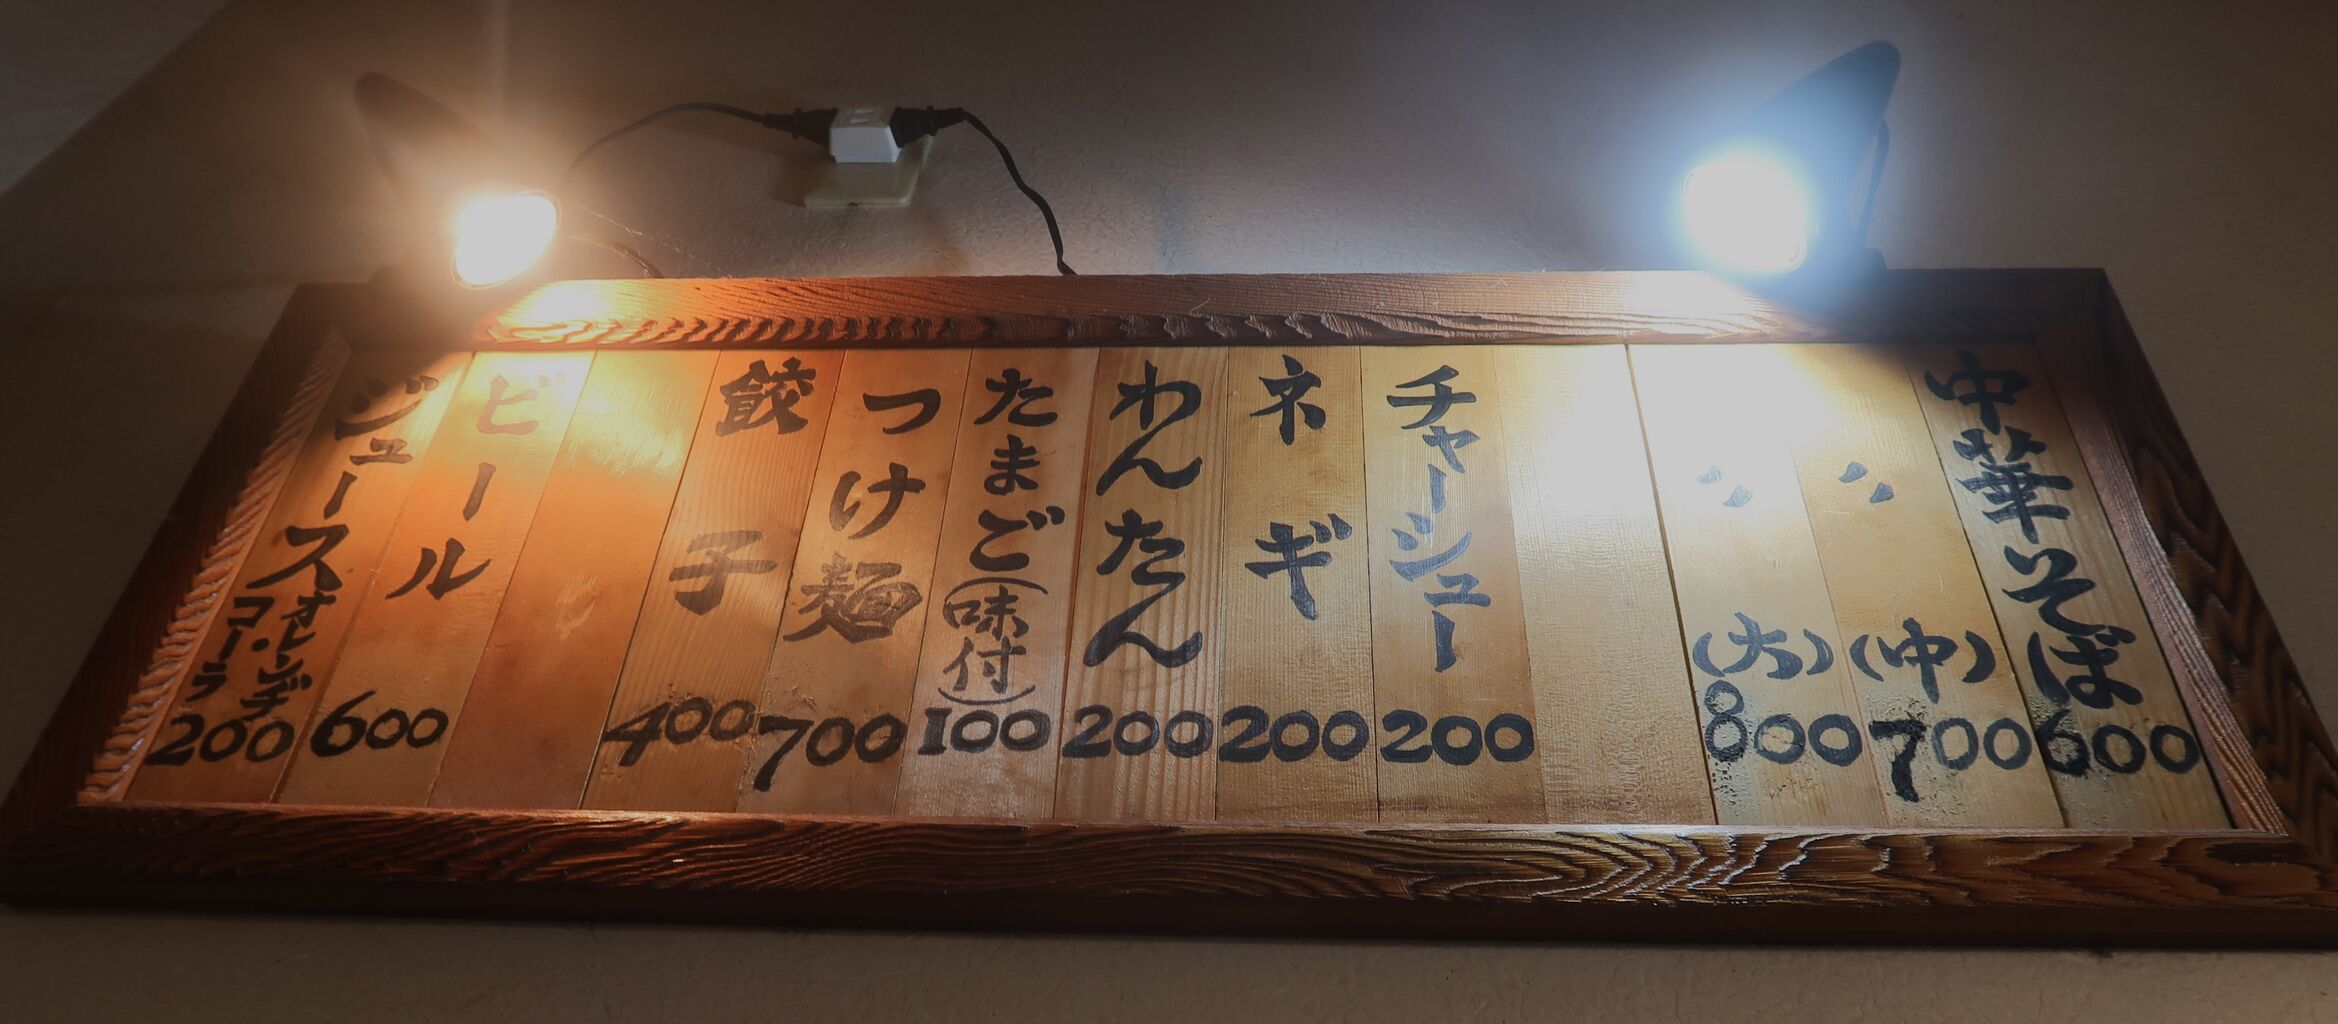 中華そば 600
〃 (中) 700
〃 (大) 800
チャーシュー 200
ネギ 200
わんたん 200
たまご(味付) 100
つけ麺 700
餃子 400
ビール 600
ジュース オレンヂ コーラ 200